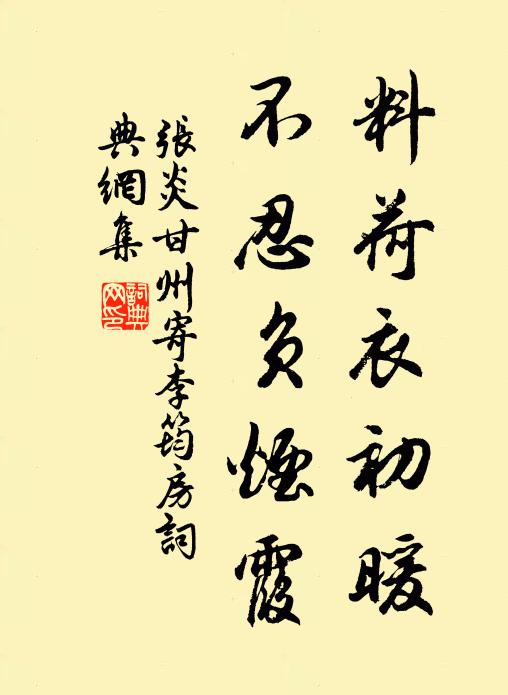 料荷衣初暖
不忍負煙霞
張炎甘州寄李筠房詞
典網集
詞典
网印